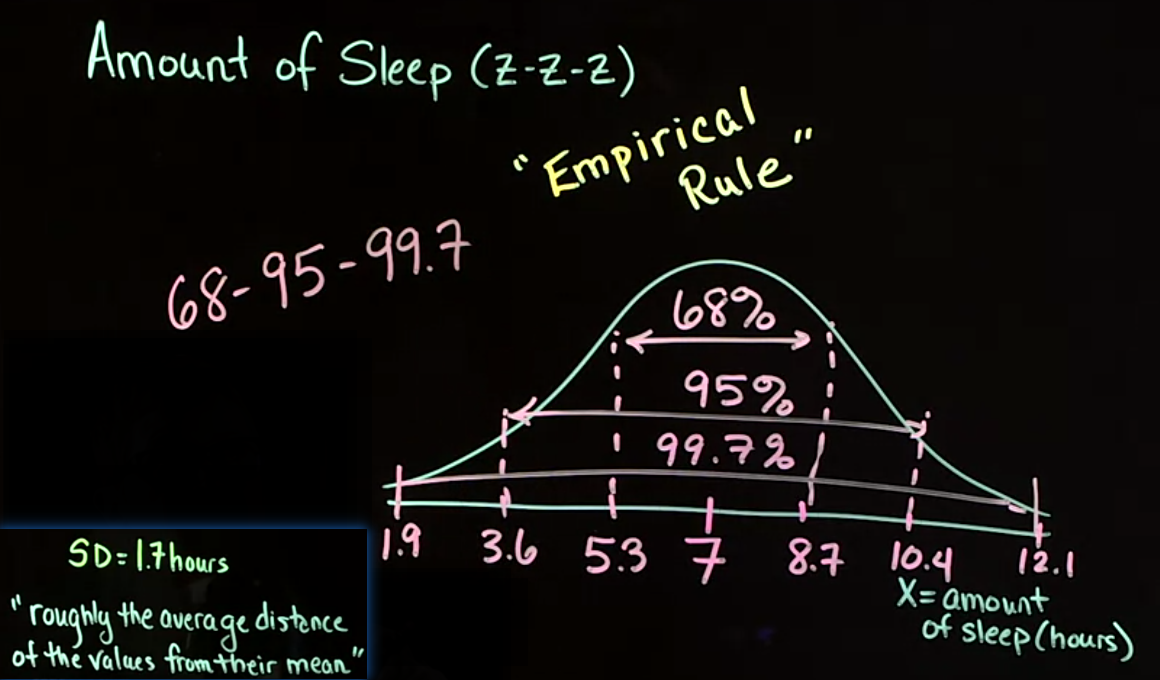 Amount of Sleep (z-z-z)
"Empirical
Rule"
68-95-99.7
68%
95%
99.7%
1.9 3.6 5.3 7 8.7 10.4 12.1
X = amount
of sleep (hours)
SD = 1.7 hours
"roughly the average distance
of the values from their mean"